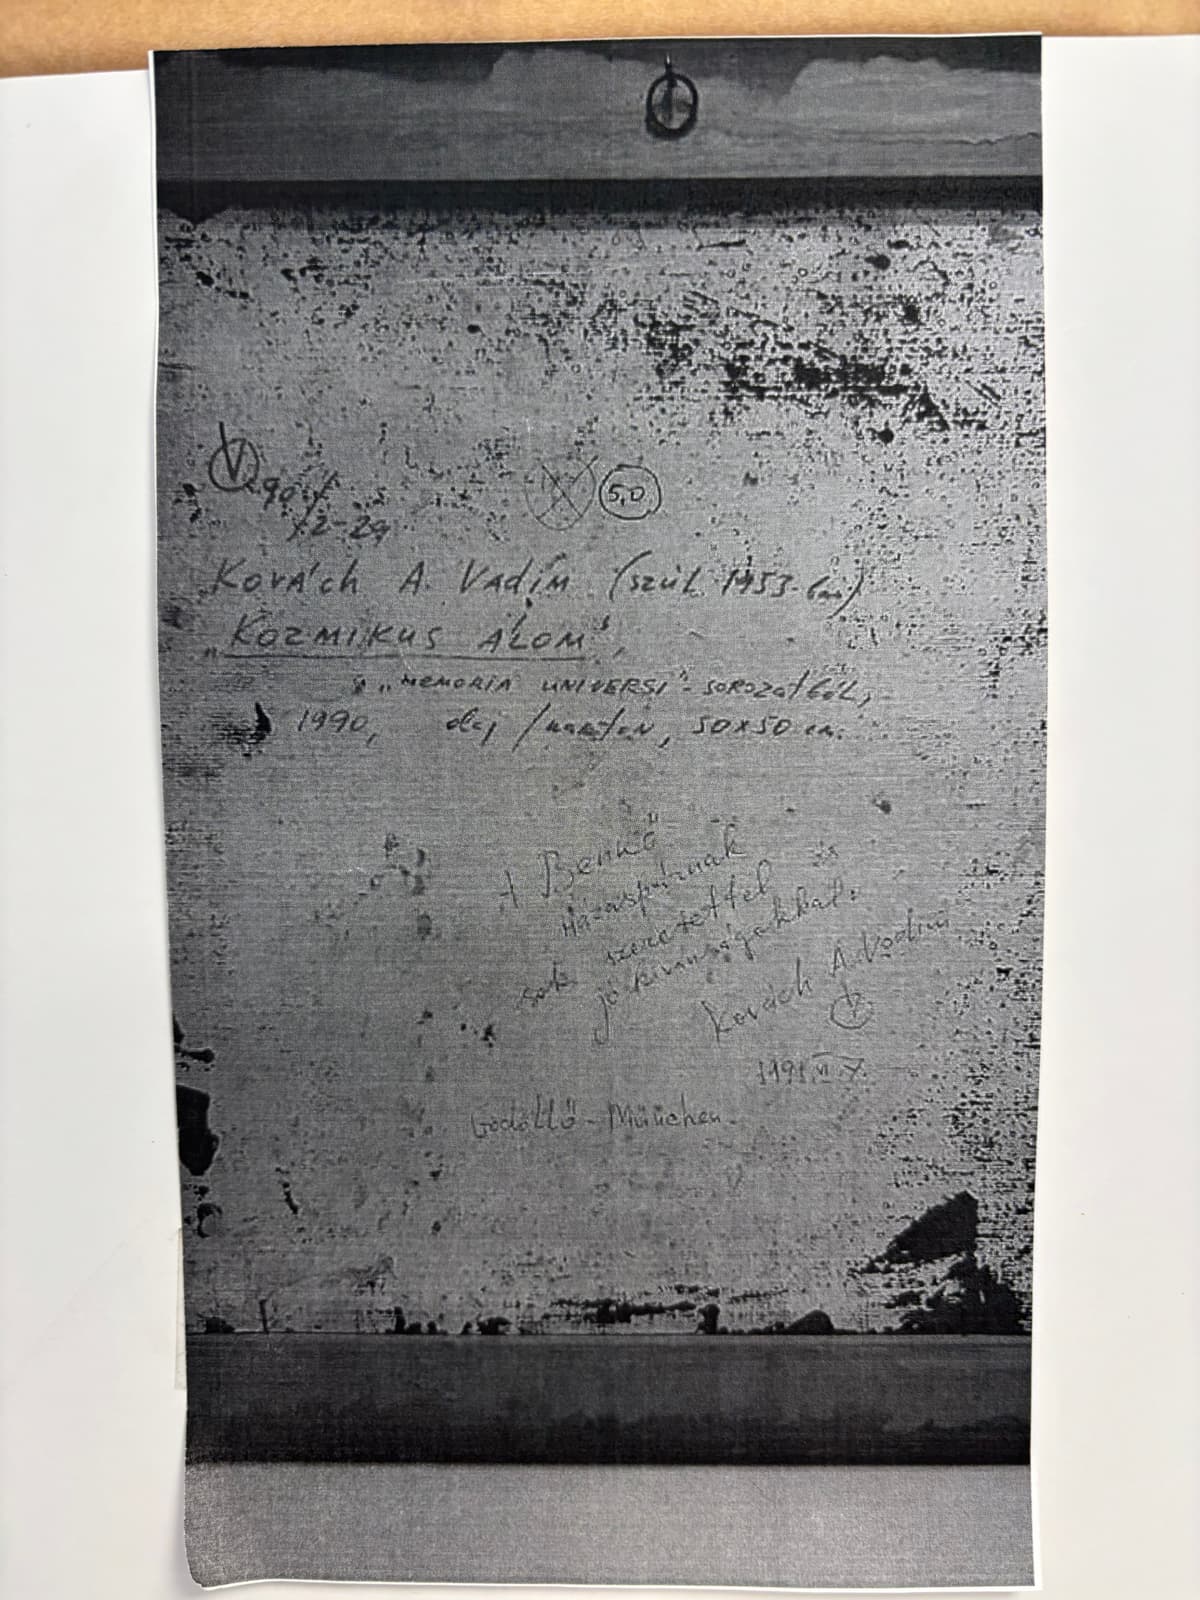 V 90/
12-29
5,0
Kovách A. Vadim (szül. 1953-ban)
„KOZMIKUS ÁLOM",
a „MEMORIA UNIVERSI"-sorozatból,
1990, olaj/karton, 50x50 cm.
A Benkő
Házaspárnak
szeretettel és
sok jó kívánságokkal.
Kovách A. Vadim
1991. VI
Gödöllő - München.